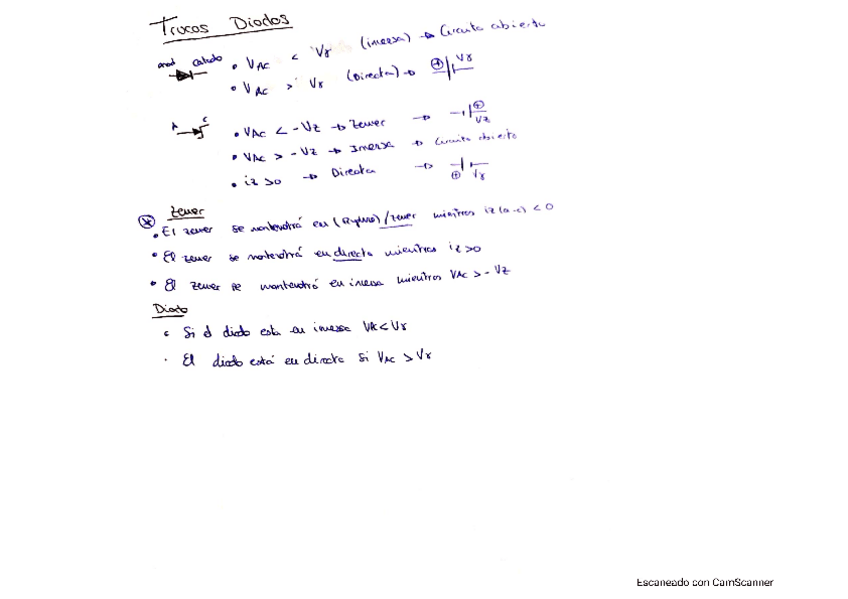 Trucos Diodos
anod catodo • VAC < Vγ (inversa) → Circuito abierto
• VAC > Vγ (Directa) → ⊕ Vγ
A C
• VAC < -VZ → Zener → ⊕ VZ
• VAC > -VZ → Inversa → Circuito abierto
• iz >0 → Directa → ⊕ Vγ
Zener
• El zener se mantendrá en (Ruptura)/zener mientras iz(a-c) < 0
• El zener se mantendrá en directa mientras iz>0
• El zener se mantendrá en inversa mientras VAC > - VZ
Diodo
• Si el diodo esta en inversa VAC < Vγ
• El diodo está en directa si VAC > Vγ
Escaneado con CamScanner